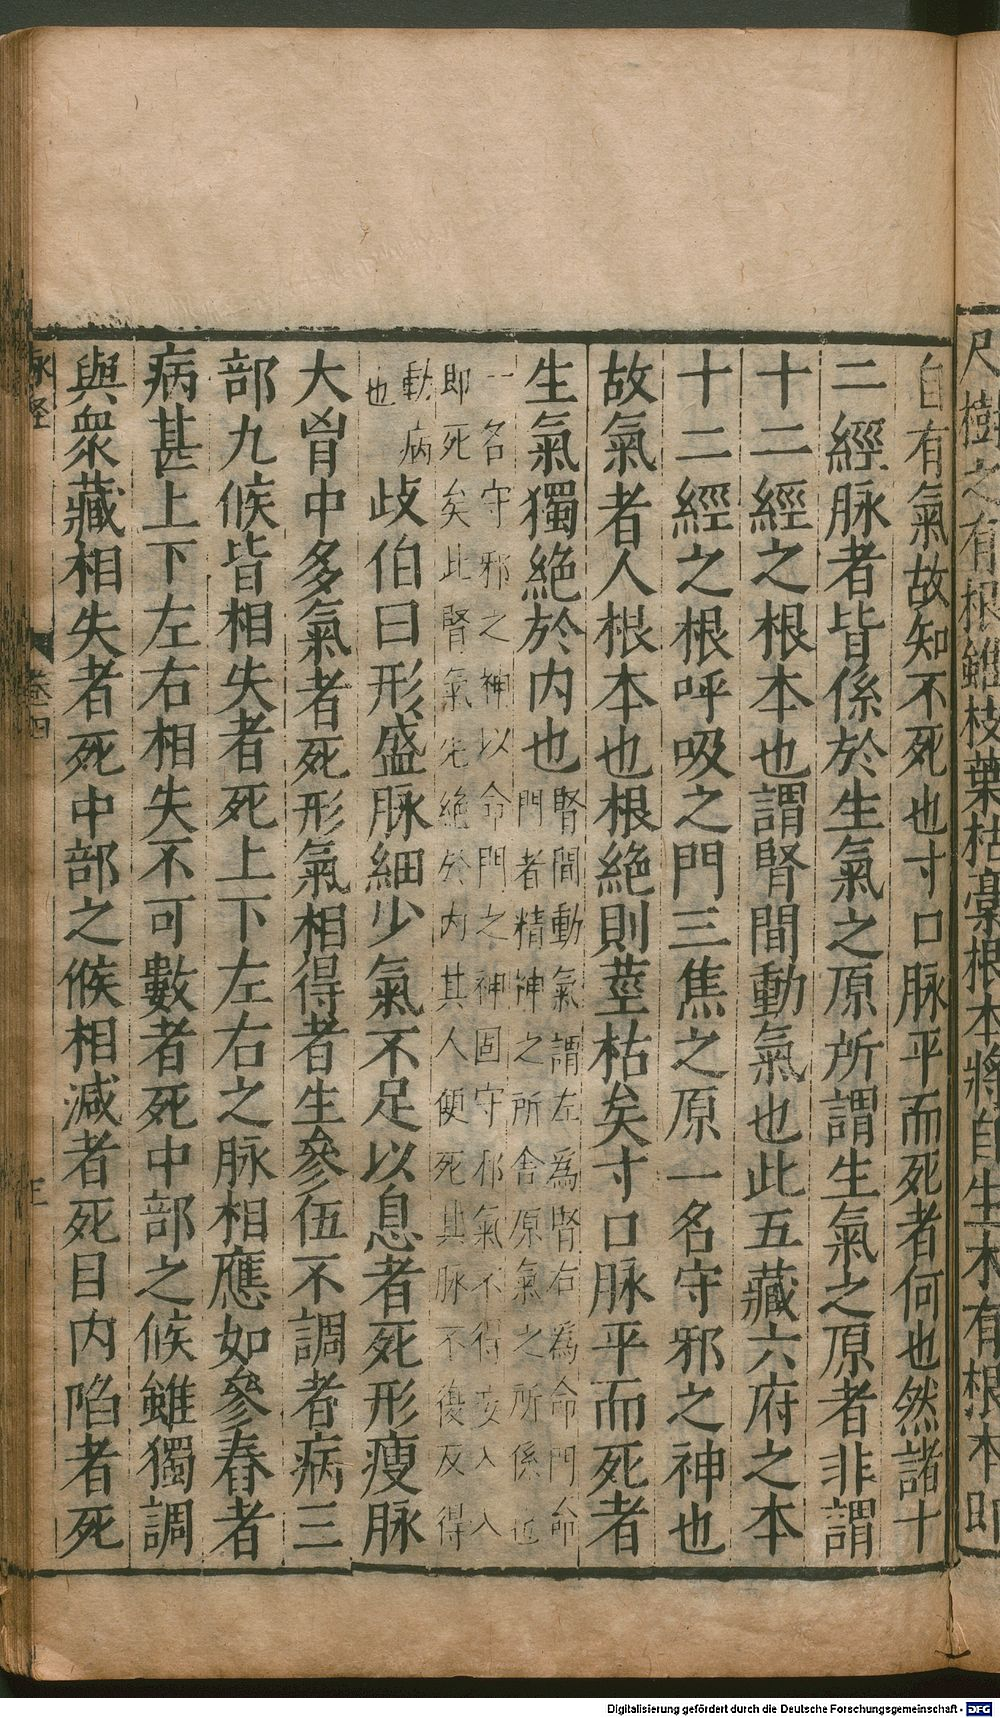 尺樹之有根雖枝葉枯槀根本將自生木有根本即
自有氣故知不死也寸口脉平而死者何也然諸十
二經脉者皆係於生氣之原所謂生氣之原者非謂
十二經之根本也謂腎間動氣也此五藏六府之本
十二經之根呼吸之門三焦之原一名守邪之神也
故氣者人根本也根絕則莖枯矣寸口脉平而死者
生氣獨絕於内也
腎間動氣謂左為腎右為命門命
門者精神之所舍原氣之所係也
一名守邪之神以命門之神固守邪氣不得妄入入
即死矣此腎氣先絕於内其人便死其脉不復反得
動病
也
歧伯曰形盛脉細少氣不足以息者死形瘦脉
大胷中多氣者死形氣相得者生參伍不調者病三
部九候皆相失者死上下左右之脉相應如參舂者
病甚上下左右相失不可數者死中部之候雖獨調
與衆藏相失者死中部之候相減者死目内陷者死
脉經
卷四